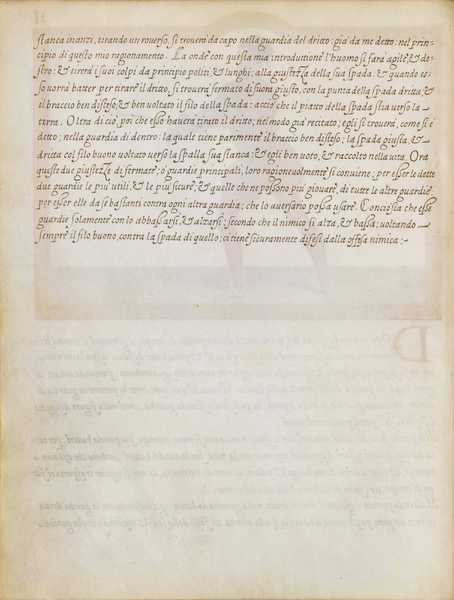 stanca inanzi, tirando un roverso, si trouerà da capo nella guardia del dritto; già da me detto, nel prin-
cipio di questo mio ragionamento. La onde con questa mia introduttione l'huomo si farà agile, & de-
stro; & tirerà i suoi colpi da principio politi, & lunghi; alla giustezza della sua spada: & quando es-
so vorrà batter per tirare il dritto, si trouerà fermato di fuora giusto, con la punta della spada dritta, &
il braccio ben disteso, & ben voltato il filo della spada: acciò che il piatto della spada stia verso la
terra. Oltra di ciò, poi che esso hauerà tirato il dritto, nel modo già recitato; egli si trouerà, come si è
detto; nella guardia di dentro: la quale tiene parimente il braccio ben disteso; la spada giusta, &
dritta col filo buono voltato verso la spalla sua stanca; & egli ben voto, & raccolto nella vita. Ora
queste due giustezze di fermate; ò guardie principali, loro ragioneuolmente si conuiene; per esser le dette
due guardie le piu utili, & le piu sicure; & quelle che ne possono piu giouare, di tutte le altre guardie,
per esser elle da se bastanti contra ogni altra guardia; che lo auersario possa usare. Conciosia che esse
guardie solamente con lo abbassarsi, & alzarsi; secondo che il nimico si alza, & bassa; voltando
sempre il filo buono, contra la spada di quello; ci tiene sicuramente difesi dalla offesa nimica:~